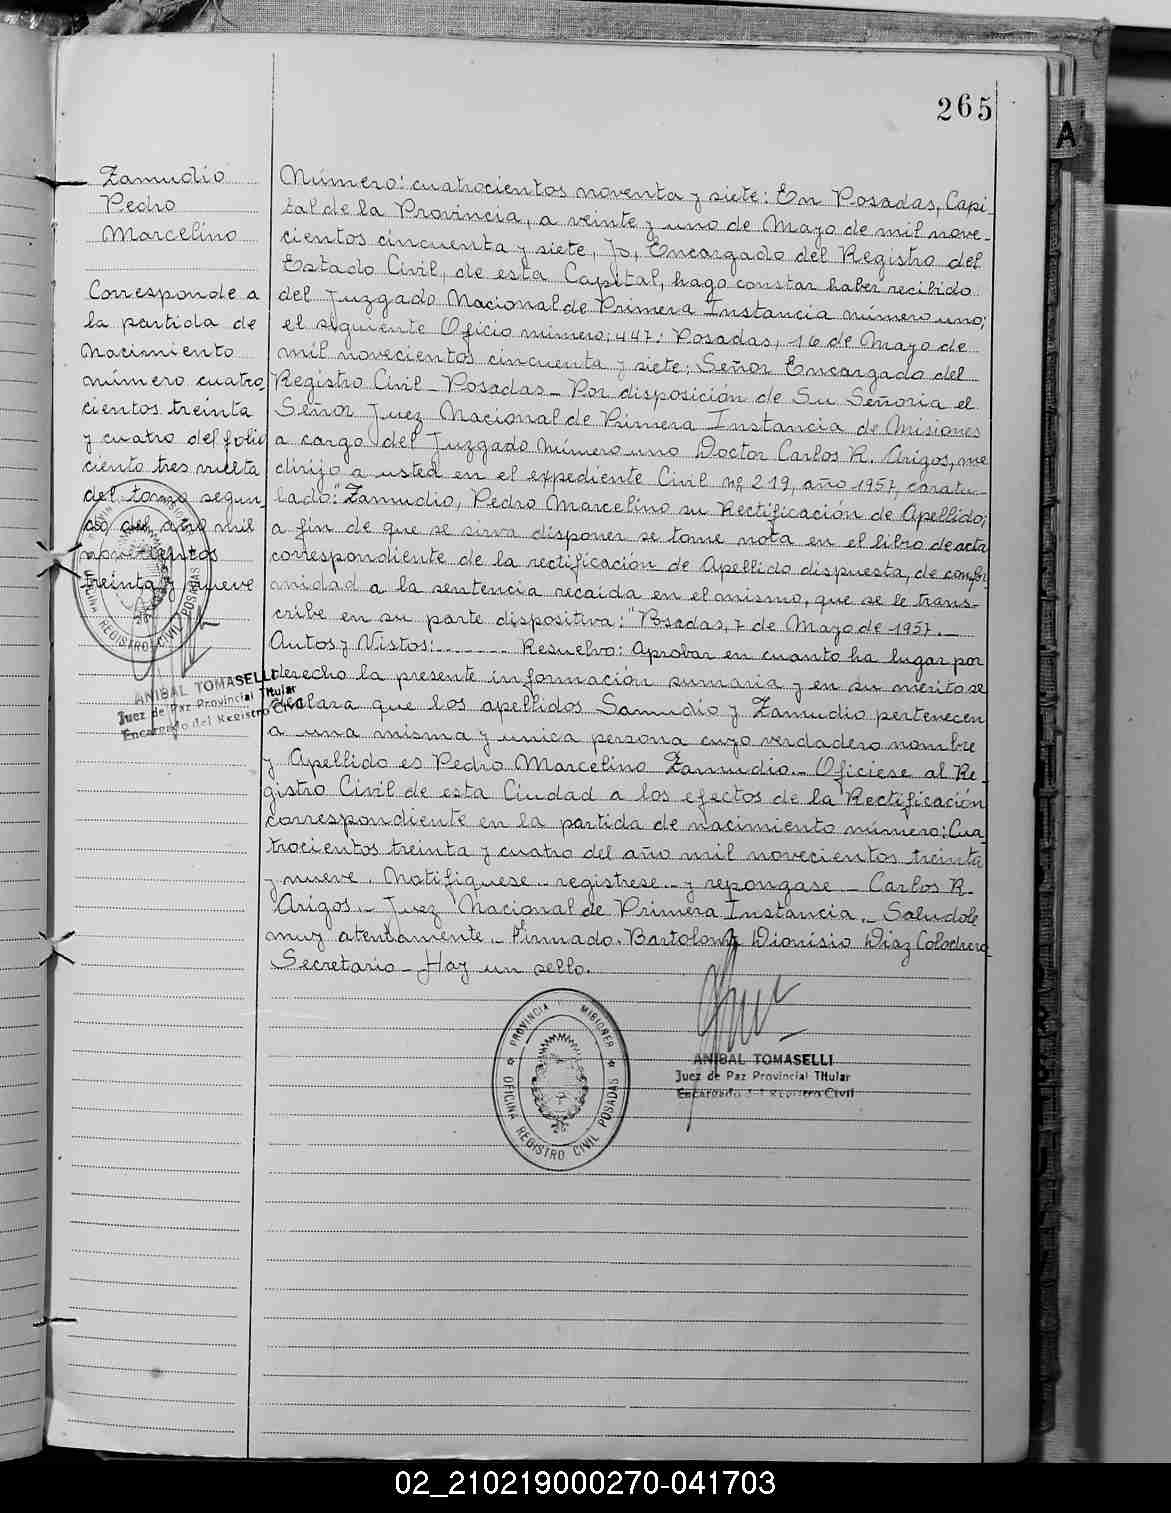 265
A
Zamudio
Pedro
Marcelino
Corresponde a
la partida de
Nacimiento
número cuatro
cientos treinta
y cuatro del folio
ciento tres vuelta
del tomo segun
do del año mil
novecientos
treinta y nueve
OFICINA REGISTRO CIVIL POSADAS
ANIBAL TOMASELLI
Juez de Paz Provincial Titular
Encargado del Registro Civil
Número: cuatrocientos noventa y siete: En Posadas, Capi-
tal de la Provincia, a veinte y uno de Mayo de mil nove-
cientos cincuenta y siete, Yo, Encargado del Registro del
Estado Civil, de esta Capital, hago constar haber recibido
del Juzgado Nacional de Primera Instancia número uno;
el siguiente Oficio número; 447: Posadas, 16 de Mayo de
mil novecientos cincuenta y siete; Señor Encargado del
Registro Civil - Posadas - Por disposición de Su Señoria el
Señor Juez Nacional de Primera Instancia de Misiones
a cargo del Juzgado Número uno Doctor Carlos R. Arigos, me
dirijo a usted en el expediente Civil nº 219, año 1957, caratu-
lado: "Zamudio, Pedro Marcelino su Rectificación de Apellido;
a fin de que se sirva disponer se tome nota en el libro de acta
correspondiente de la rectificación de Apellido dispuesta, de confor
midad a la sentencia recaida en el mismo, que se le trans-
cribe en su parte dispositiva: "Posadas, 7 de Mayo de 1957. -
Autos y Vistos: ....... Resuelvo: Aprobar en cuanto ha lugar por
derecho la presente información sumaria y en su merito se
declara que los apellidos Samudio y Zamudio pertenecen
a una misma y unica persona cuyo verdadero nombre
y Apellido es Pedro Marcelino Zamudio. - Oficiese al Re-
gistro Civil de esta Ciudad a los efectos de la Rectificación
correspondiente en la partida de nacimiento número: Cua
trocientos treinta y cuatro del año mil novecientos treinta
y nueve. Notifiquese - registrese - y repongase. - Carlos R.
Arigos. - Juez Nacional de Primera Instancia. - Saludole
muy atentamente. - Firmado. Bartolomé Dionisio Diaz Colodrero
Secretario - Hay un sello.
PROVINCIA MISIONES
OFICINA REGISTRO CIVIL POSADAS
ANIBAL TOMASELLI
Juez de Paz Provincial Titular
Encargado del Registro Civil
02_210219000270-041703